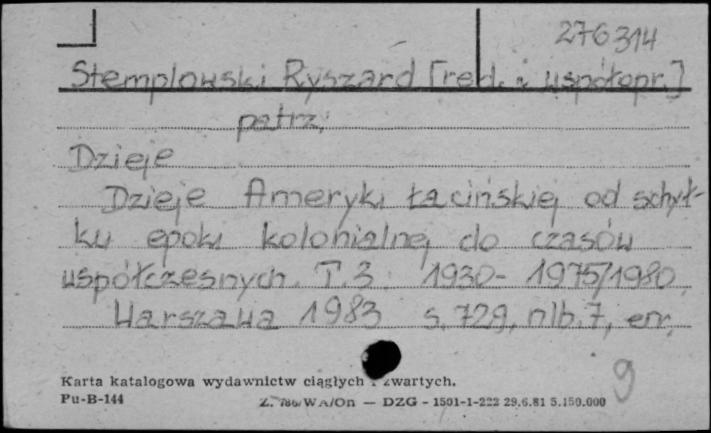 276314
Stemplowski Ryszard [red. i współopr.]
patrz:
Dzieje
Dzieje Ameryki Łacińskiej od schył-
ku epoki kolonialnej do czasów
współczesnych. T.3. 1930-1975/1980.
Warszawa 1983 s. 729, nlb. 7, err.
9
Karta katalogowa wydawnictw ciągłych i zwartych.
Pu-B-144 Z. WA/On — DZG - 1501-1-222 29.6.81 5.150.000